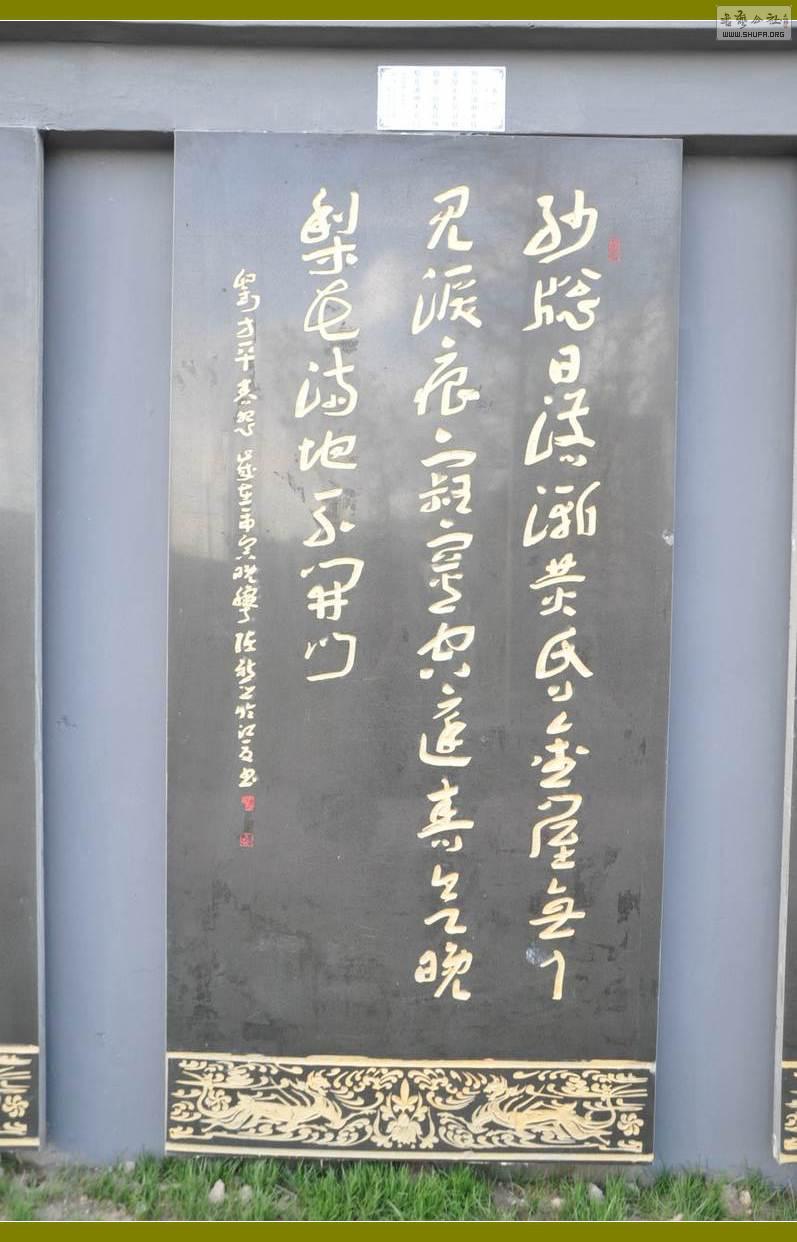 紗窗日落漸黃昏金屋無人
見淚痕寂寞空庭春欲晚
梨花滿地不開門
劉方平春怨 歲在 於江夏書
WWW.SHUFA.ORG